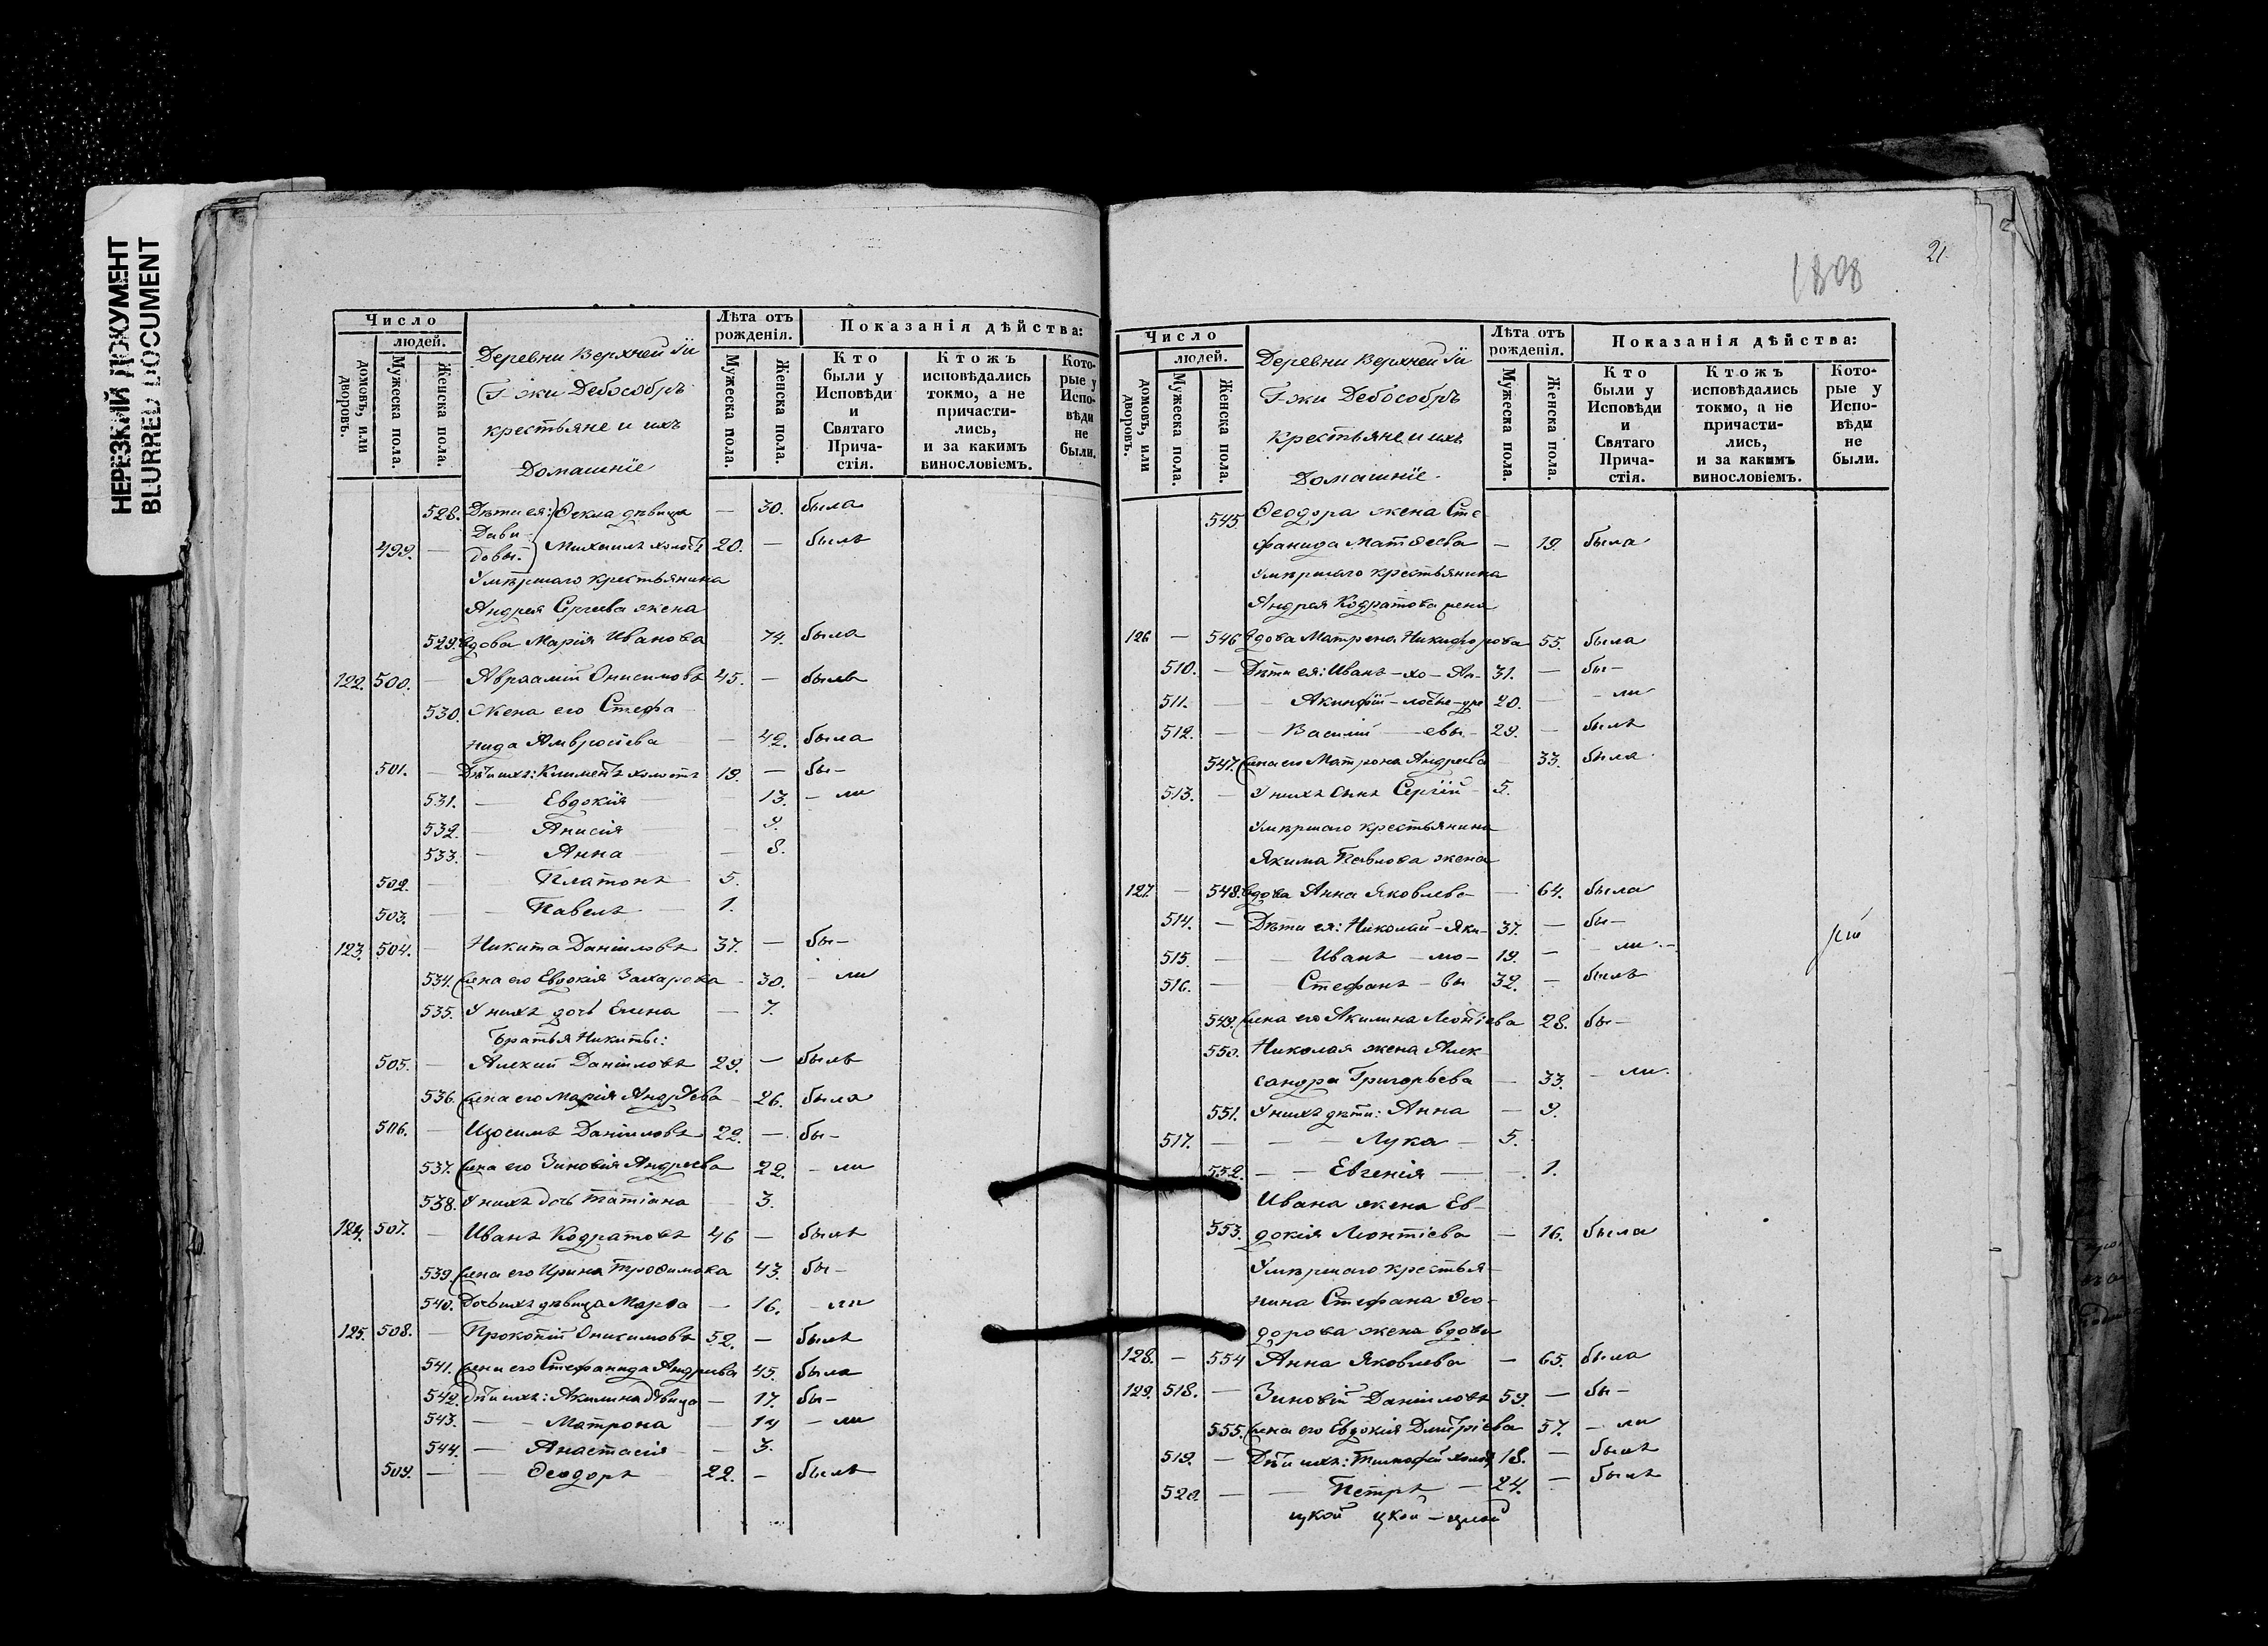 НЕРЕЗКИЙ ДОКУМЕНТ
BLURRED DOCUMENT
Число
людей.
домовъ, или дворовъ.
Мужеска пола.
Женска пола.
Деревни Верхней
Г-жи Дебособръ
крестьяне и ихъ
Домашніе
Лѣта отъ рожденія.
Мужеска пола.
Женска пола.
Показанія дѣйства:
Кто были у Исповѣди и Святаго Прича-стія.
Ктожъ исповѣдались токмо, а не причасти-лись, и за какимъ винословіемъ.
Кото-рые у Испо-вѣди не были.
528. Дѣти ея: Ѳекла дѣвица — 30. была
Дави-
499. — довы. Михаилъ холостъ 20. — былъ
Умершаго крестьянина
Андрея Сергѣева жена
529. вдова Марія Иванова 74. была
122. 500. — Авраамій Онисимовъ 45. — былъ
530. Жена его Стефа
нида Амвросіева — 42. была
501. — Дѣти ихъ: Климентъ холостъ 19. — бы-
531. — Евдокія 13. - ли
532. — Анисія — 9.
533. — Анна — 8.
502. — Платонъ 5.
503. — Павелъ 1.
123. 504. — Никита Даніиловъ 37. — бы-
534. Жена его Евдокія Захарова - 30. - ли
535. У нихъ дочь Елена — 7.
Братья Никиты:
505. — Алексій Даніиловъ 29. — былъ
536. Жена его Марія Андрѣева - 26. была
506. — Изосимъ Даніиловъ 22. — бы-
537. Жена его Зиновія Андреева 22. - ли
538. У нихъ дочь Татіана — 3.
124. 507. — Иванъ Кодратовъ 46 — былъ
539. Жена его Ирина Трофимова 43. бы-
540. Дочь ихъ дѣвица Марѳа — 16. - ли
125. 508. — Прокопій Онисимовъ 52. — былъ
541. Жена его Стефанида Андреева 45. была
542. Дѣти ихъ: Акилина дѣвица — 17. бы-
543. — - Матрона — 14 - ли
544. — Анастасія - 3.
509. — — Ѳеодоръ 22. - былъ
1808
21.
Число
людей.
домовъ, или дворовъ.
Мужеска пола.
Женска пола.
Деревни Верхней
Г-жи Дебособръ
крестьяне и ихъ
Домашніе.
Лѣта отъ рожденія.
Мужеска пола.
Женска пола.
Показанія дѣйства:
Кто были у Исповѣди и Святаго Прича-стія.
Ктожъ исповѣдались токмо, а не причасти-лись, и за какимъ винословіемъ.
Кото-рые у Испо-вѣди не были.
545. Ѳеодора жена Сте-
фанида Матѳеева — 19. была
Умершаго крестьянина
Андрея Кодратова жена
126 — 546 вдова Матрена Никифорова 55. была
510. — Дѣти ея: Иванъ - хо - Ан- 31. — бы-
511. — Акинфій - лосты - дре 20. - ли
512. — - Василій — евы - 29. - былъ
547. Жена его Матрона Андреева 33. была
513. — У нихъ сынъ Сергій 5.
Умершаго крестьянина
Якима Павлова жена
127. — 548. вдова Анна Яковлева — 64. была
514. — Дѣти ея: Николай - Яки- 37. — бы-
515. — — Иванъ - мо- 19. — - ли
516. — Стефанъ - вы 32. — былъ
549. Жена его Акилина Леонтіева 28. бы-
550. Николая жена Алек-
сандра Григорьева — 33. - ли.
551. У нихъ дѣти: Анна — 9.
517. — — Лука - 5.
552. — — Евгенія — 1.
Ивана жена Ев-
553. докія Леонтіева — 16. была
Умершаго крестья-
нина Стефана Ѳео-
дорова жена вдова
128. — 554 Анна Яковлева — 65. была
129. 518. — Зиновій Даніиловъ 59. — бы-
555. Жена его Евдокія Дмитріева 57. - ли
519. — Дѣти ихъ: Тимофей холостъ 18. — былъ
520. — — Петръ — 24. — былъ